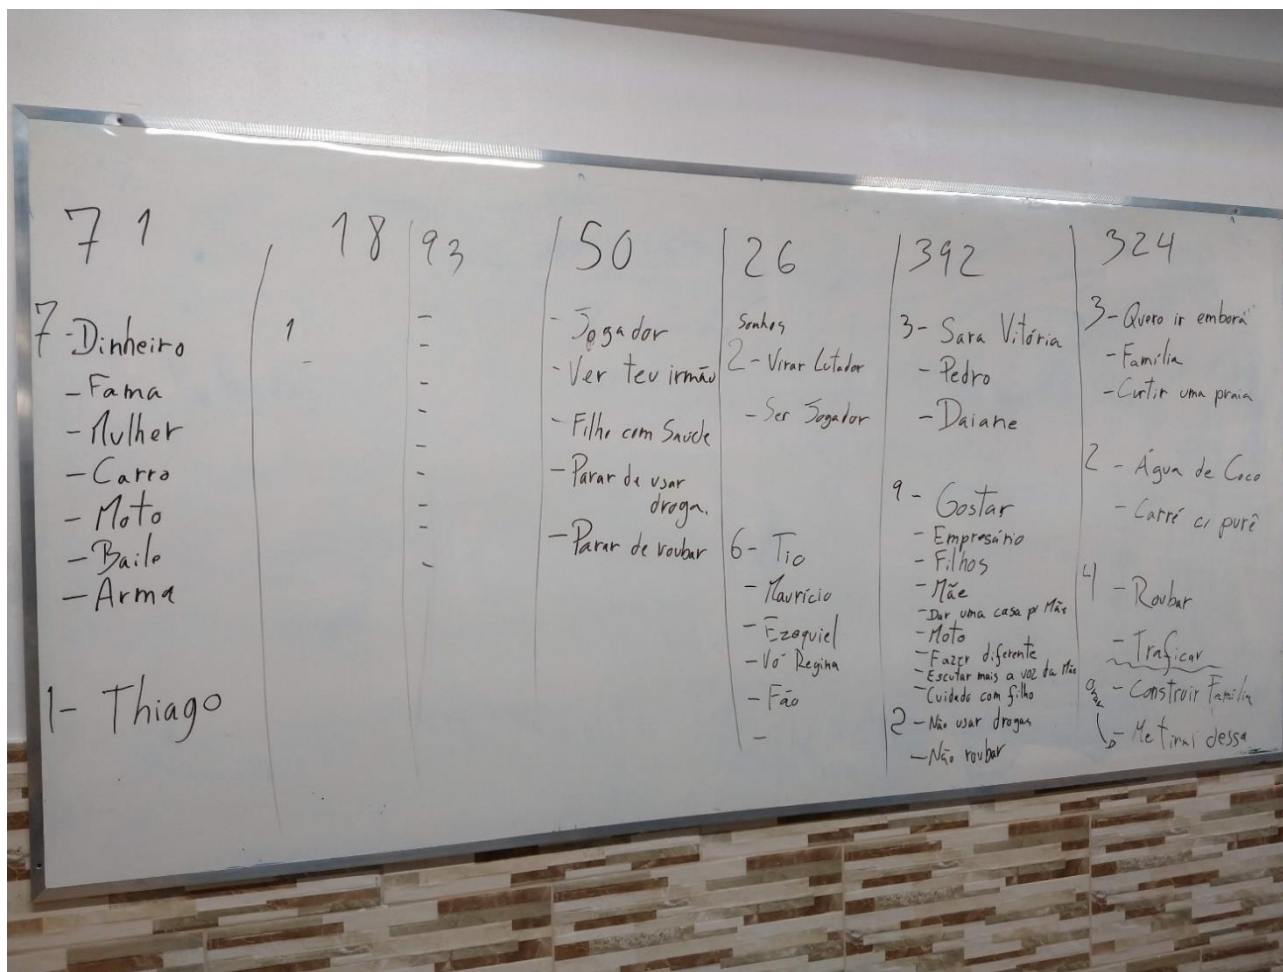 71
7 - Dinheiro
- Fama
- Mulher
- Carro
- Moto
- Baile
- Arma
1 - Thiago
18
1
-
93
-
-
-
-
-
-
-
-
50
- Jogador
- Ver teu irmão
- Filho com Saúde
- Parar de usar
droga.
- Parar de roubar
26
Sonhos
2 - Virar Lutador
- Ser Jogador
6 - Tio
- Maurício
- Ezequiel
- Vó Regina
- Fão
-
392
3 - Sara Vitória
- Pedro
- Daiane
9 - Gostar
- Empresário
- Filhos
- Mãe
- Dar uma casa p/ Mãe
- Moto
- Fazer diferente
- Escutar mais a voz da Mãe
- Cuidado com filho
2 - Não usar drogas
- Não roubar
324
3 - Quero ir embora
- Família
- Curtir uma praia
2 - Água de Coco
- Carré c/ purê
4 - Roubar
- Traficar
- Construir Família
- Me tirar dessa